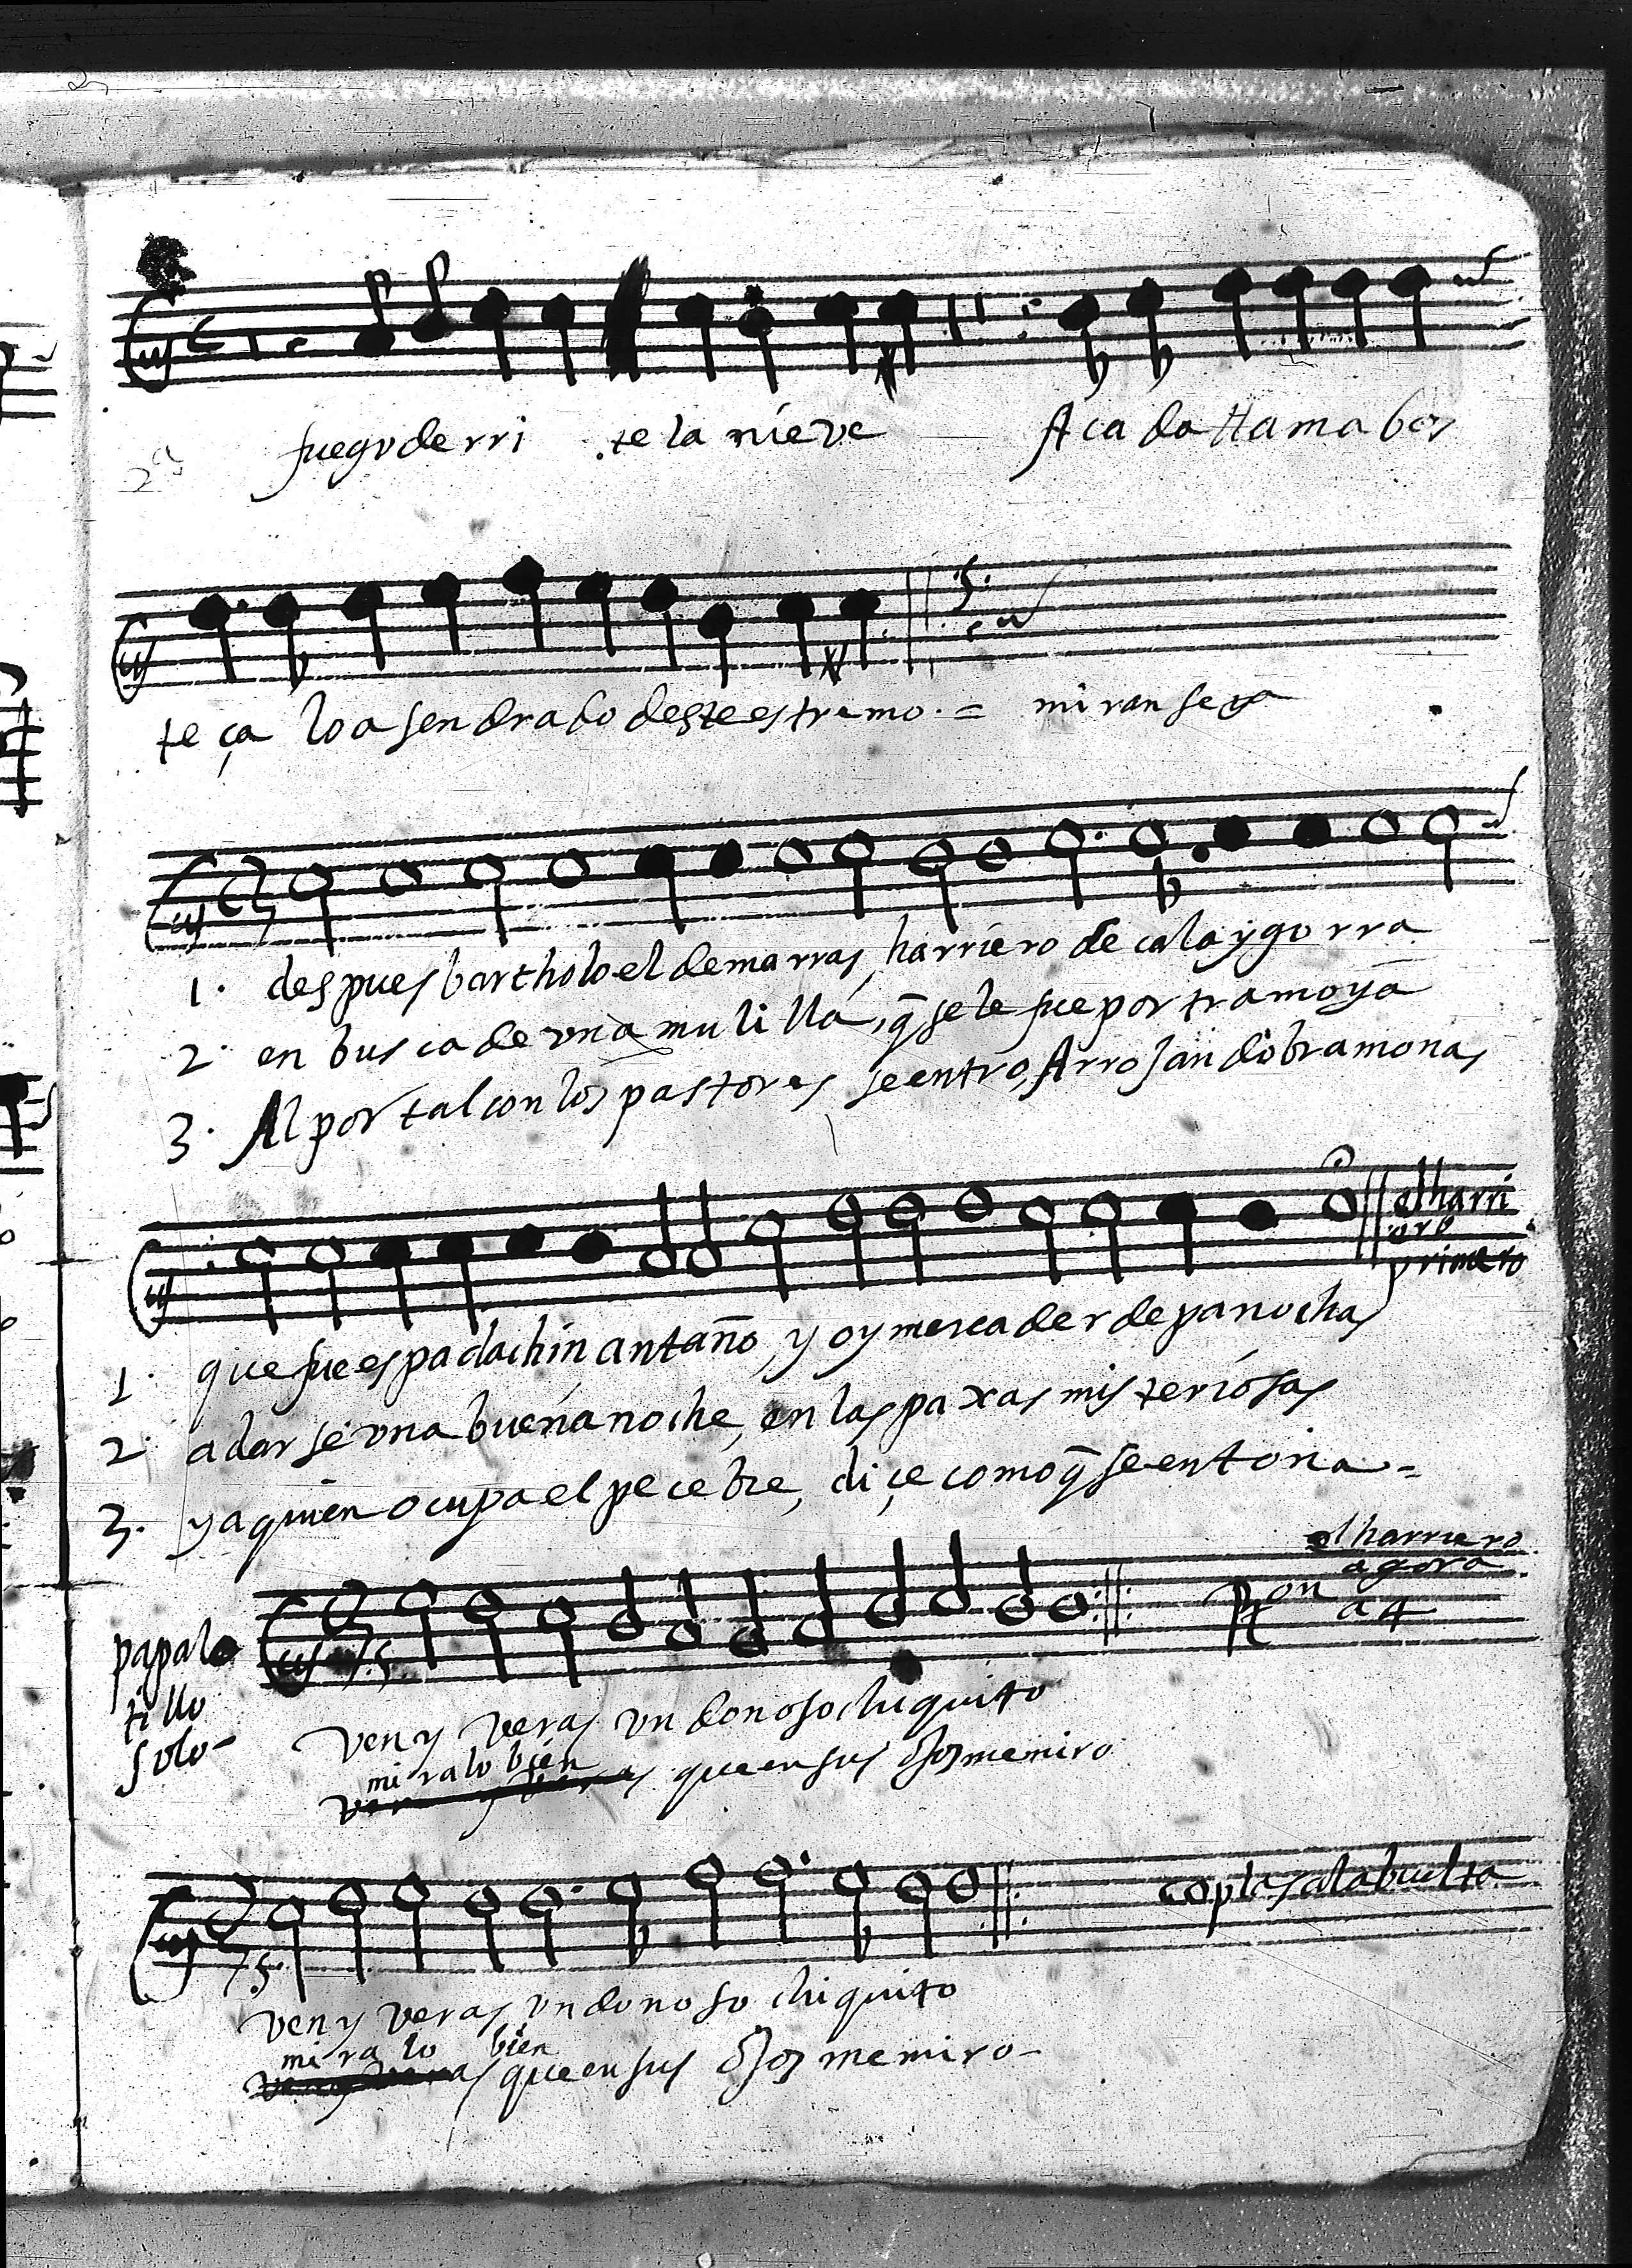 fuego derri te la nieve Aca da llama bos
te ça lo a sendrado deste estremo. = miran se ya
1. despues bartholo el de marras, harriero de calaygorra
2. en busca de vna mulilla, q̃ se le fue por tramoya
3. Al portal con los pastores se entro, Arrojando bramonas
el harri
ero
primero
1. que fue espadachin antaño, y oy mercader de panochas
2. a darse vna buena noche, en las paxas misteriosas
3. y a quien ocupa el pecebre, diçe como q̃ se entona =
el harriero
agora
Ron a 4
papalo
tillo
solo -
ven y veras vn donoso chiquito
mira lo bien
que en sus ojos me miro
coplas a la buelta
ven y veras vn donoso chiquito
mira lo bien
que en sus ojos me miro -